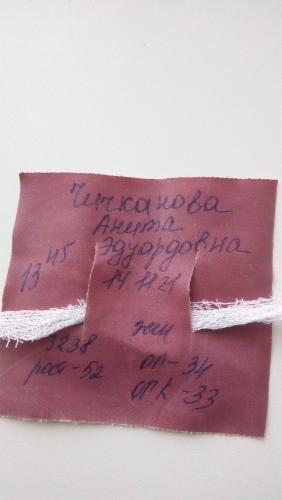 Чичканова
Анита
Эдуардовна
13 45
14 11 21
жен
3238
рост-52
ог-34
огк-33